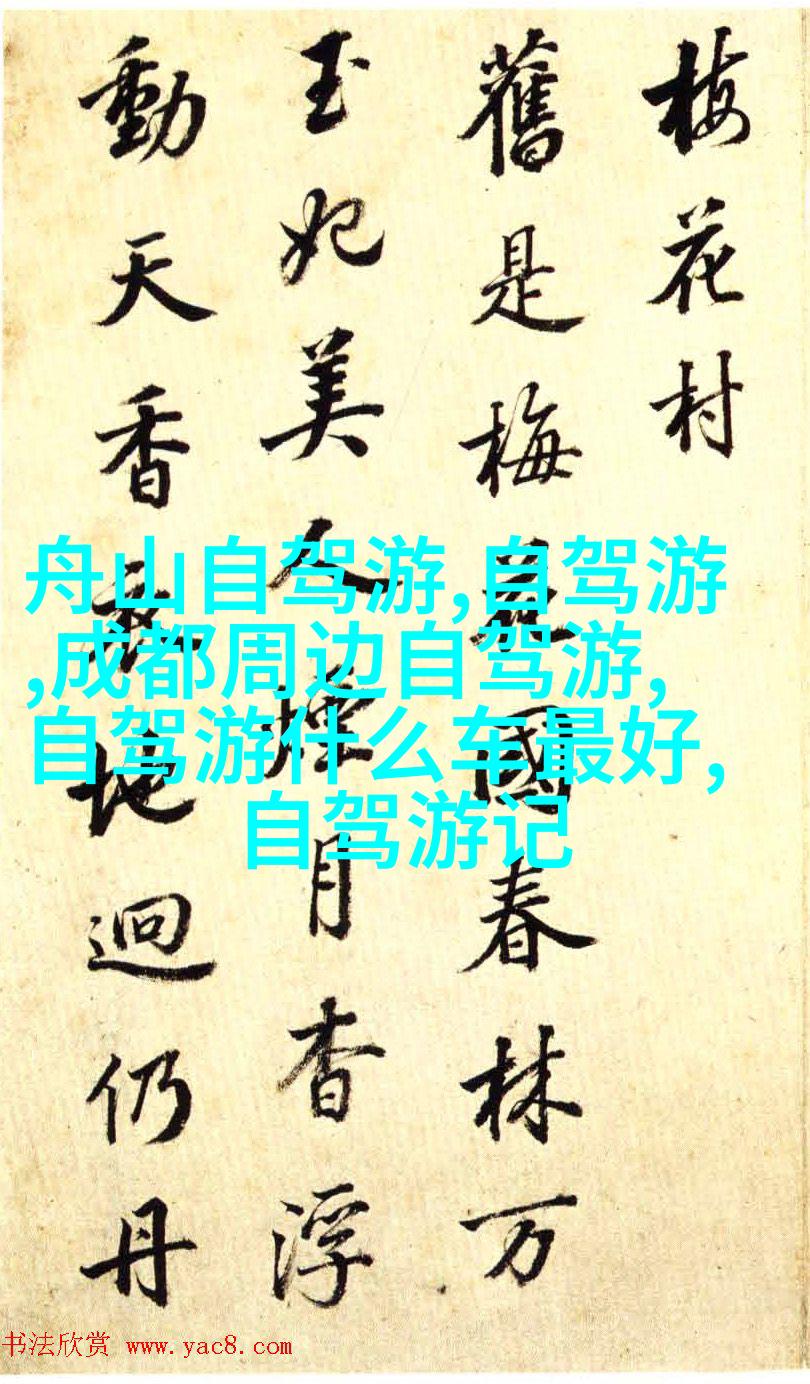 梅花村
舊是梅國春林万
玉妃美人煙月杳浮
動天香地迥仍丹
舟山自驾游,自驾游
,成都周边自驾游,
自驾游什么车最好,
自驾游记
书法欣赏 www.yac8.com